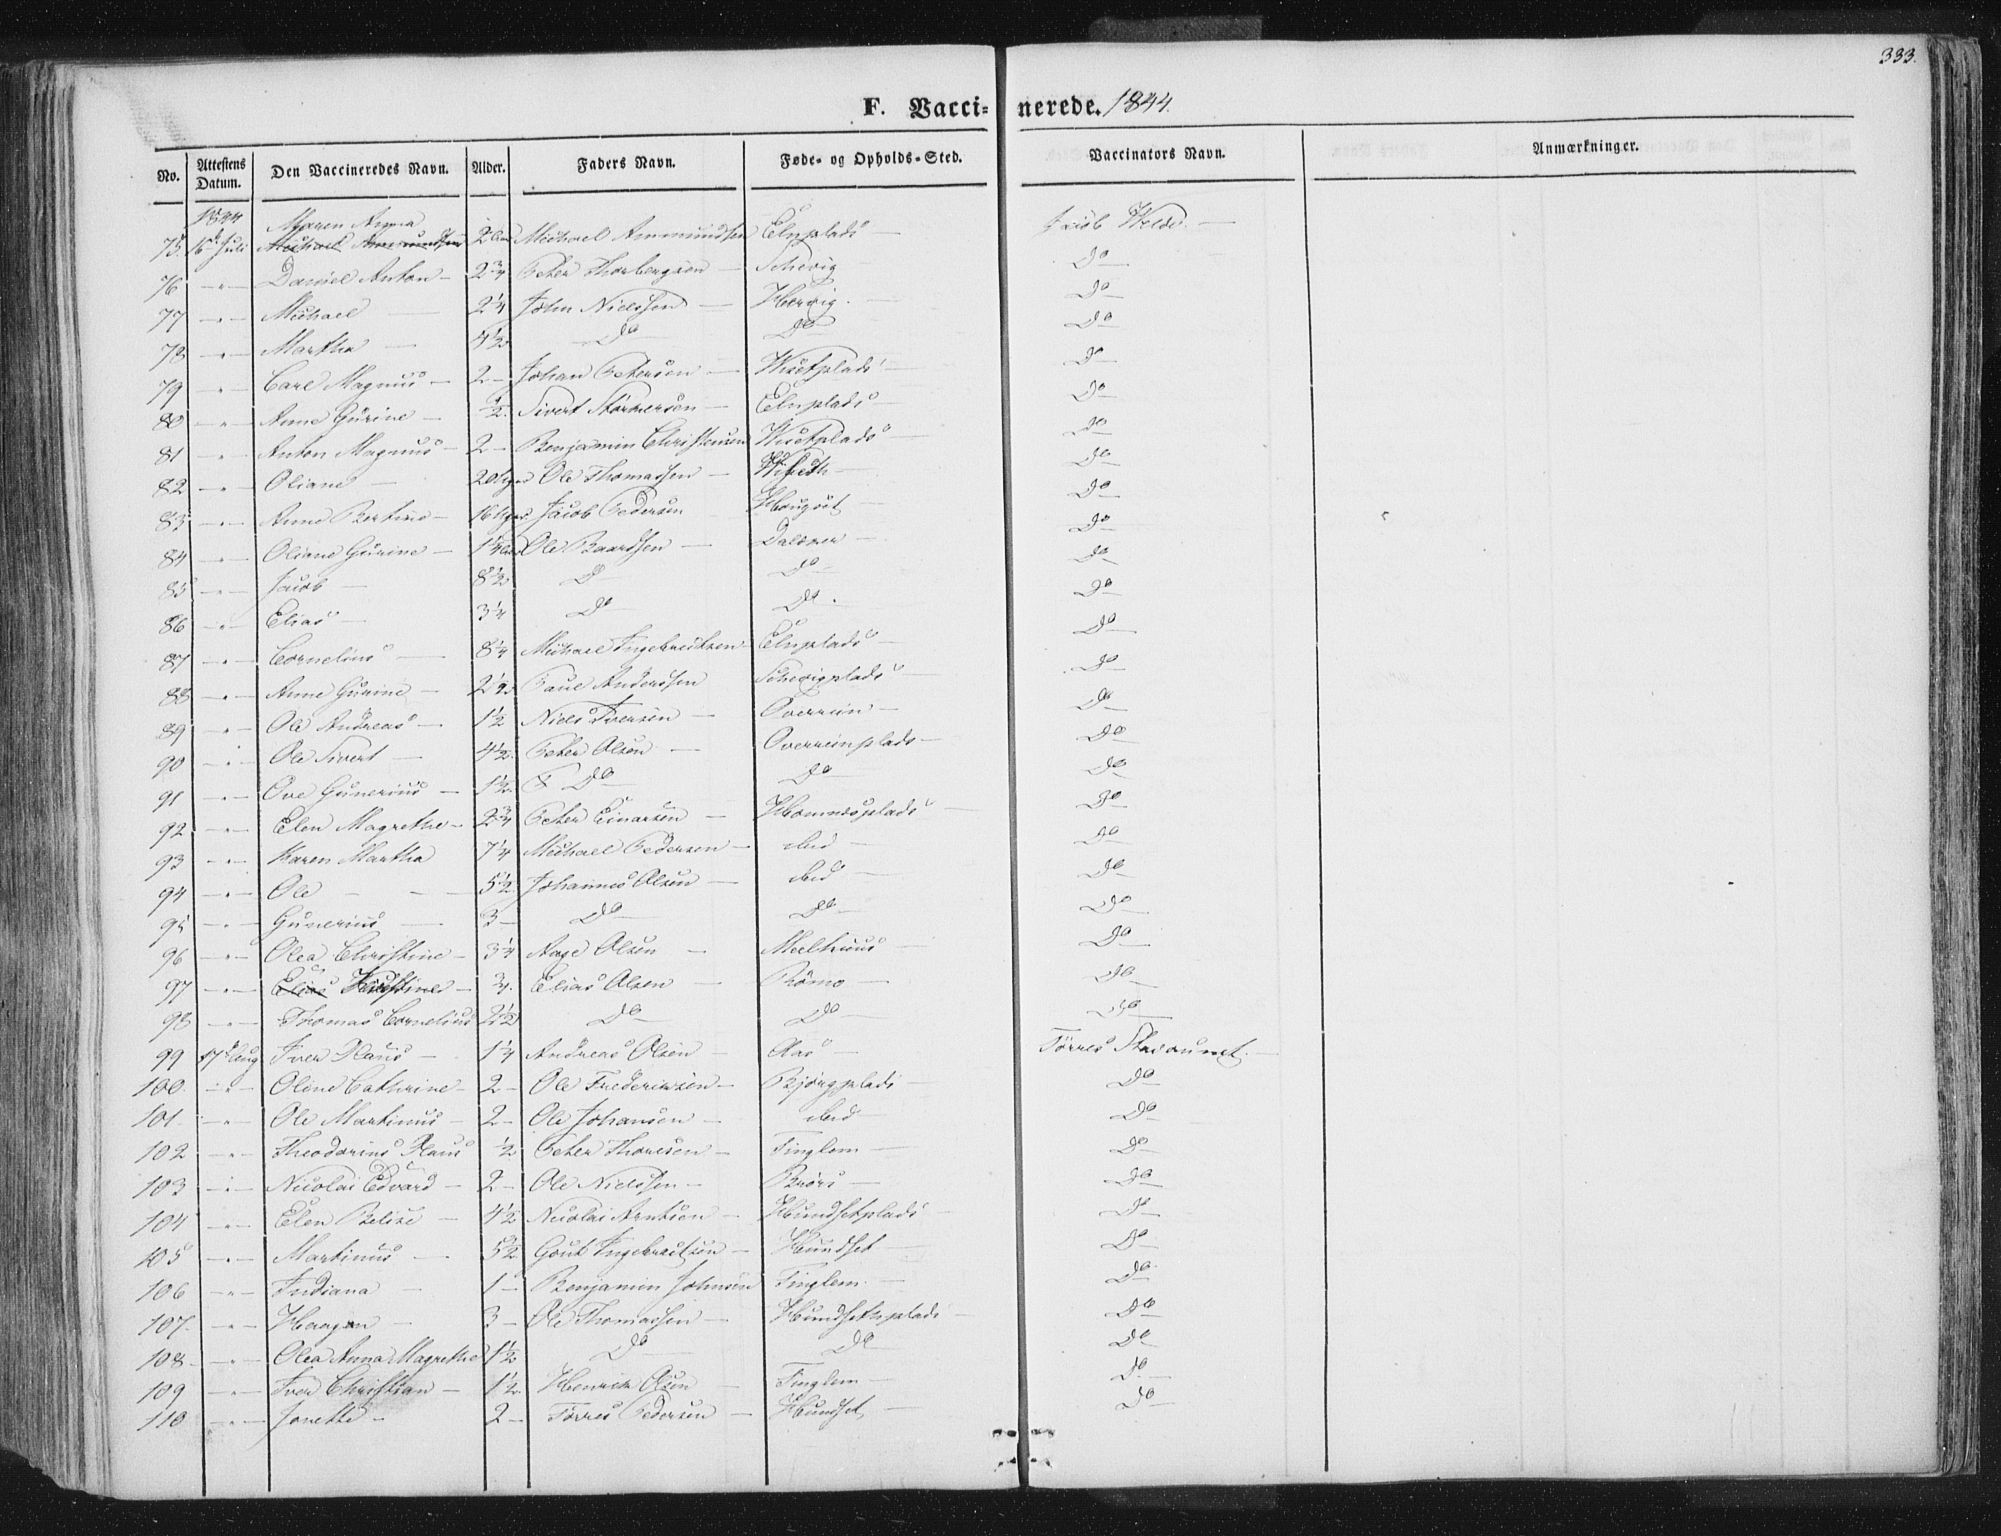 333.
F. Vaccinerede. 1844.
No. Attestens Datum. Den Vaccineredes Navn. Alder. Faders Navn. Føde- og Opholds-Sted. Vaccinators Navn. Anmærkninger.
1844 Maren Anna
75. 16d Juli Michael Ammundsen 2 Michael Ammundsen Elnplads — Jacob Welde. —
76 — " — Daniel Anton — 2 3/4 Peter Thorbergsen — Schevig — Do
77 — " — Michael — 2 1/4 John Nielssen — Hervig. — Do
78 — " — Martha — 4 1/2 Do Do Do
79 — " — Carl Magnus — 2 — Johan Petersen — Wisetplads — Do
80 — " — Anne Gurine — 1/2. Sivert Størkersen — Elnplads — Do
81 — " — Anton Magnus — 2 — Benjamin Christensen Wisetplads — Do
82 — " — Oliane — 20 Uger Ole Thomassen — Do
83 — " — Anne Bertine — 16 Uger Jacob Pedersen Hougset — Do
84 — " — Oliane Gurine — 1 1/4 Ole Baardsen — Dalsner — Do
85 — " — Jacob — 8 1/2 Do Do Do
86 — " — Elias — 3 1/4 Do Do. Do
87 — " — Cornelius — 8 1/4 Michael Ingebrektsen Elnplads — Do
88 — " — Anne Gurine — 2 1/2 Paul Anderssen Schevigplads — Do
89 — " — Ole Andreas — 1 1/2 Niels Iversen — Overrein — Do
90 — " — Ole Sivert — 4 1/2. Peter Olsen — Overreinplads — Do
91 — " — Ove Gunerius — 1 1/2. Do Do Do
92 — " — Elen Magrethe — 2 3/4 Peter Einarsen — Hommesplads — Do
93 — " — Karen Martha 7 1/4 Michael Pedersen — ibid — Do
94 — " — Ole — 5 1/2. Johannes Olsen — ibid — Do
95 — " — Gunerius 3 — Do Do Do
96 — " — Olea Christine — 3 1/4 Aage Olsen — Melhuus — Do
97 — " — Elias — 3/4. Elias Olsen — Römo — Do
98 — " — Thomas Cornelius 2 1/2 Do Do Do
99 17d Aug Iver Klaus — 1 1/4 Andreas Olsen — Aas — Tørres Stavrumet. —
100. — " — Oline Cathrine — 2 — Ole Frederiksen — Bjørgplads Do
101. — " — Ole Martinus — 2 — Ole Johansen — ibid — Do
102 — " — Theodorius Klaus 1/2 Peter Thoresen — Finglem — Do
103 — " — Nicolai Edvard — 2 — Ole Nielssen — Brörs — Do
104 — " — Elen Belise — 4 1/2 Nicolai Arntsen — Hundsetplads — Do
105 — " — Martinus — 5 1/2 Gout Ingebrektsen — Hundset — Do
106 — " — Indiana — 1 — Benjamin Johnsen Finglem. — Do.
107. — " — Haagen — 3 — Ole Thomassen — Hundsethplads — Do
108. — " — Olea Anna Magrethe 1 1/2 Do Do Do
109 — " — Iver Christian — 1 1/2. Henrik Olsen — Finglem — Do.
110 — " — Jonetta — 2 — Tørres Pedersen — Hundset, — Do